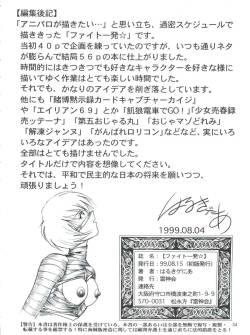 【編集後記】
「アニパロが描きたい…」と思い立ち、過密スケジュールで
描ききった「ファイト一発☆」です。
当初40pで企画を練っていたのですが、いつも通りネタ
が膨らんで結局56pの本に仕上がりました。
時間的にはきつきつでも好きなキャラクターを好き様に
描いてゆく作業はとても楽しい時間でした。
それでも、かなりのアイデアを削ぎ落としています。
他にも「賭博黙示録カードキャプターカイジ」
や「エイリアン69」とか「飢狼電車でGO!」「少女売春録
売ッテーナ」「第五おじゃる丸」「おじゃマゾどれみ」
「解凍ジャンヌ」「がんばれロリコン」などなど、実にいろ
いろなアイデアはあったのです。
全部はとても描けませんでした。
タイトルだけで内容を想像してください。
それでは、平和で民主的な日本の将来を願いつつ、
頑張りましょう！
はるきゲにあ
1999.08.04
誌名：【ファイト一発☆】
発行日：99.08.15（初版発行）
著者：はるきゲにあ
発行：雷神会
連絡先
570-0031 松永方『雷神会』